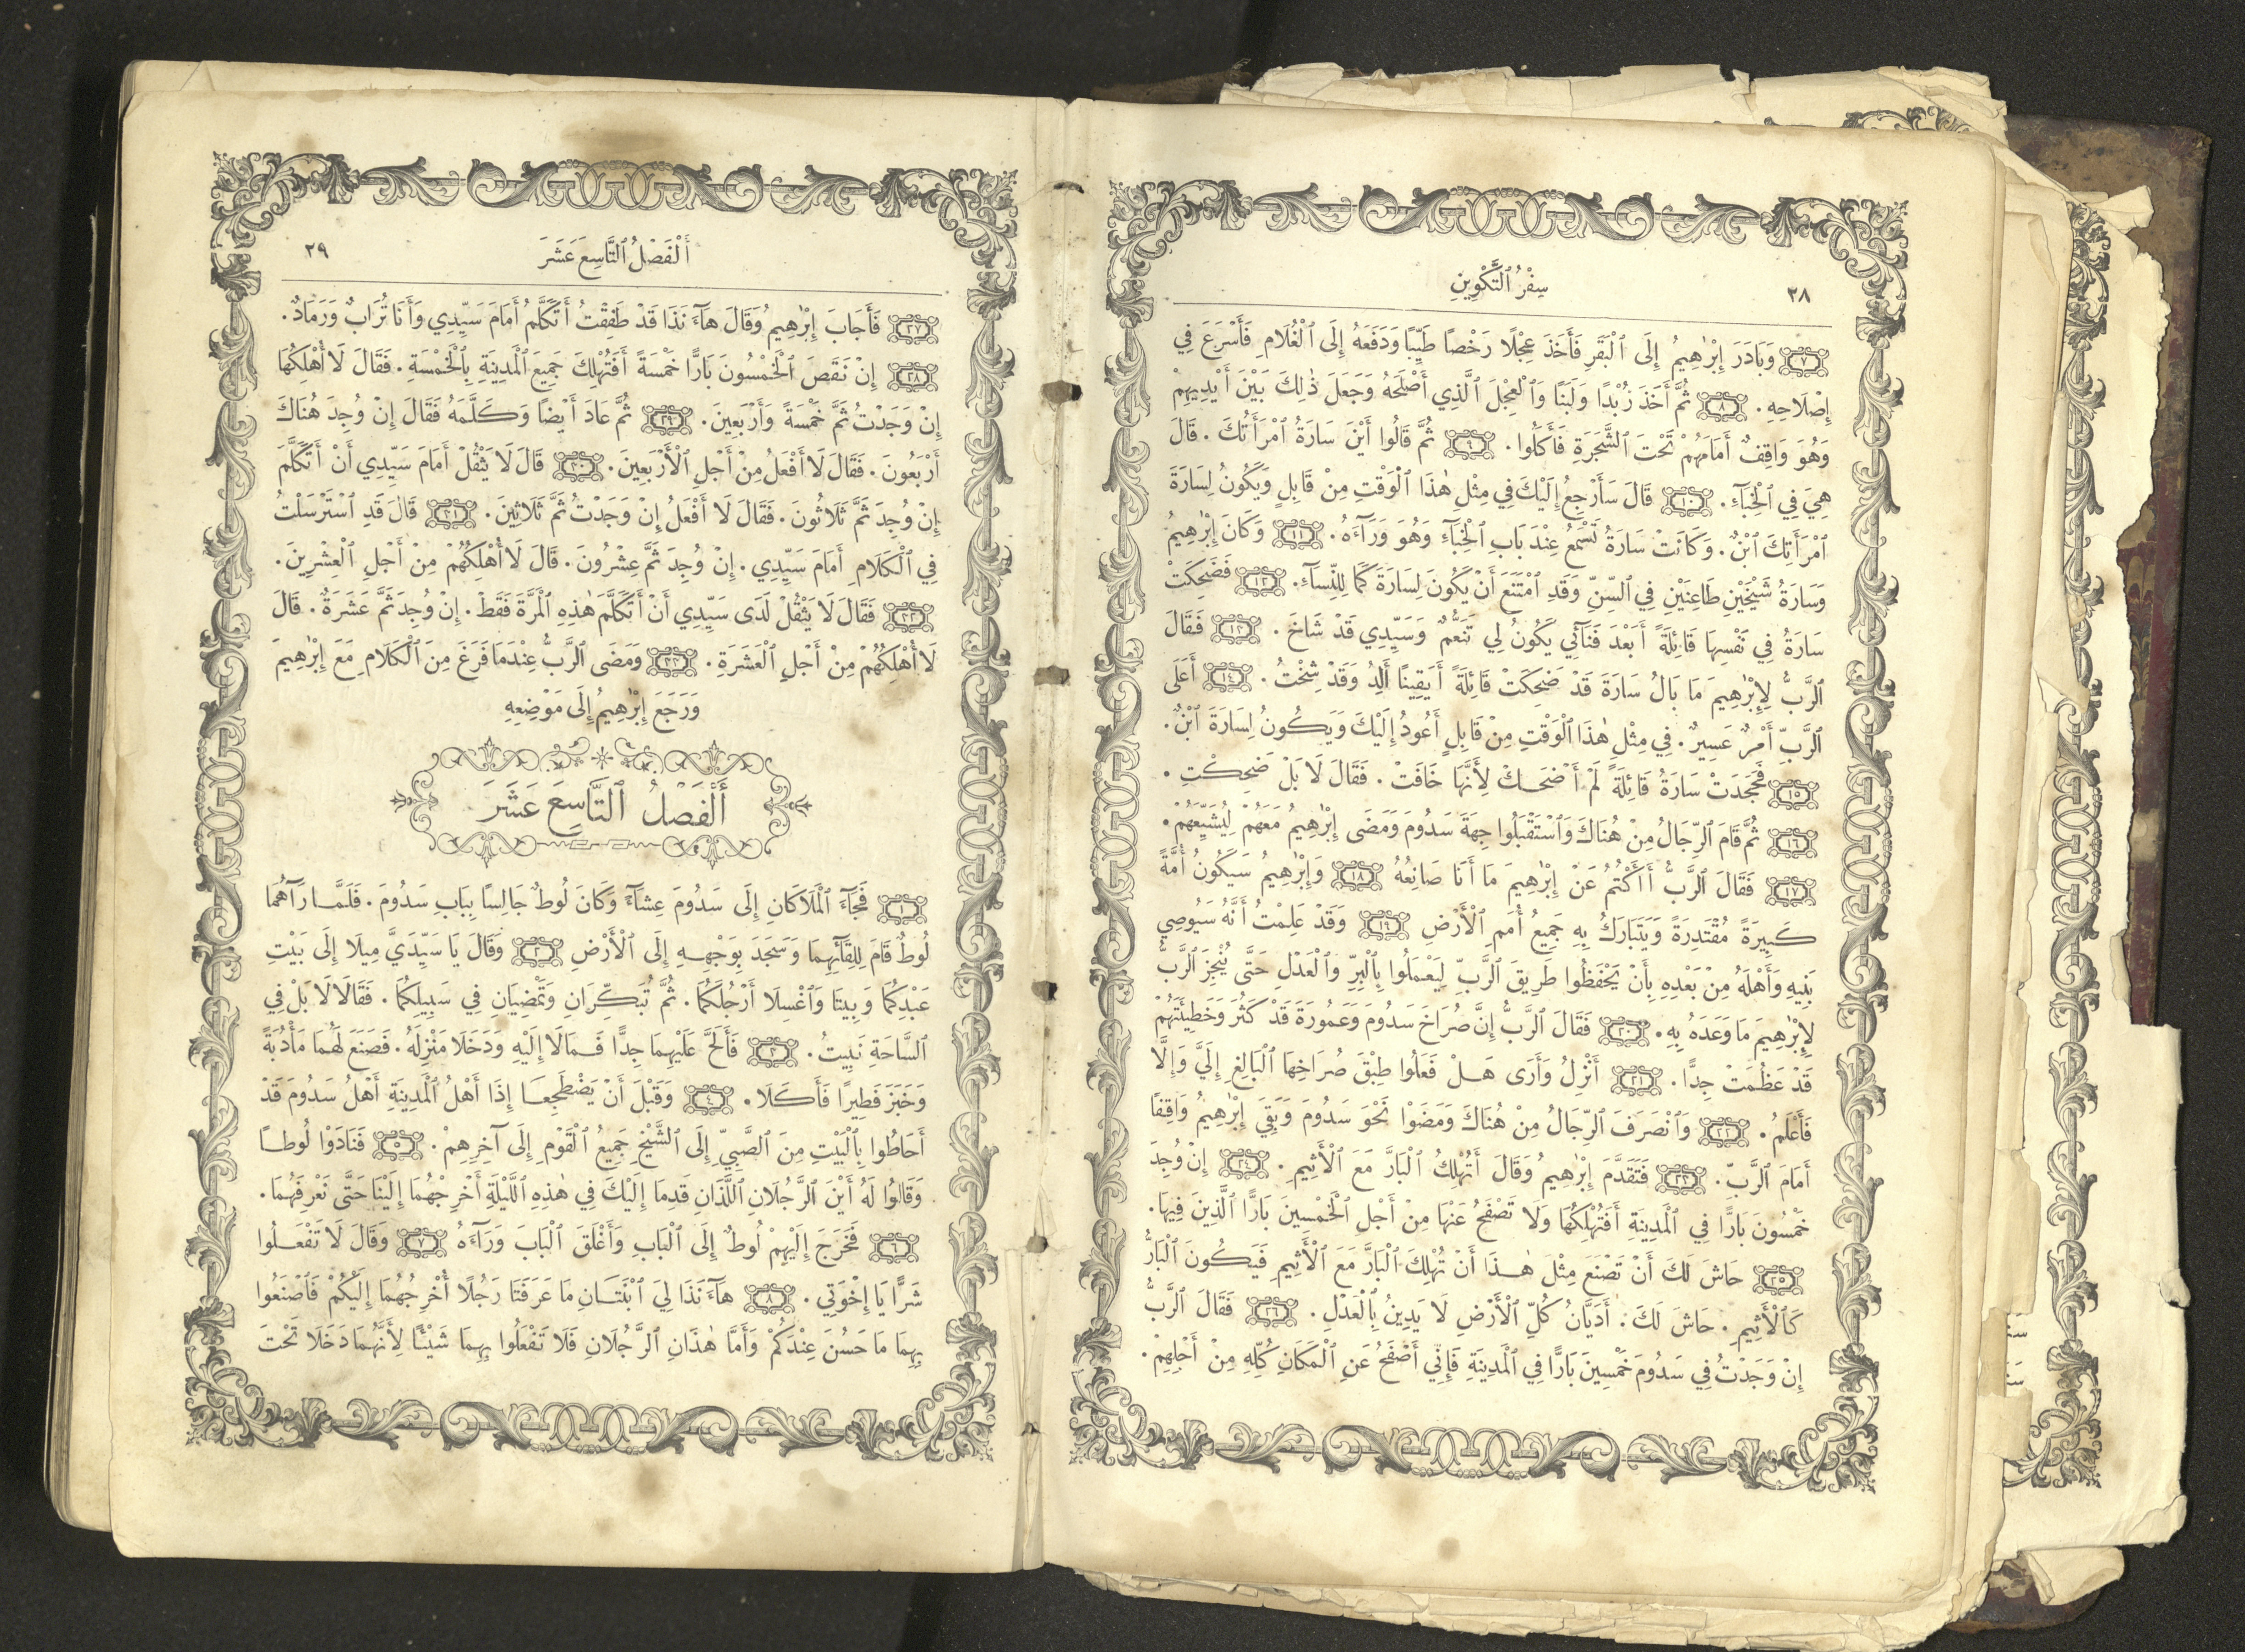 ٢٨
سِفْرُ ٱلتَّكْوِينِ
٧ وَبَادَرَ إِبْرٰهِيمُ إِلَى ٱلْبَقَرِ فَأَخَذَ عِجْلًا رَخْصًا طَيِّبًا وَدَفَعَهُ إِلَى ٱلْغُلَامِ فَأَسْرَعَ فِي
إِصْلَاحِهِ. ٨ ثُمَّ أَخَذَ زُبْدًا وَلَبَنًا وَٱلْعِجْلَ ٱلَّذِي أَصْلَحَهُ وَجَعَلَ ذٰلِكَ بَيْنَ أَيْدِيهِمْ
وَهُوَ وَاقِفٌ أَمَامَهُمْ تَحْتَ ٱلشَّجَرَةِ فَأَكَلُوا. ٩ ثُمَّ قَالُوا أَيْنَ سَارَةُ ٱمْرَأَتُكَ. قَالَ
هِيَ فِي ٱلْخِبَآءِ. ١٠ قَالَ سَأَرْجِعُ إِلَيْكَ فِي مِثْلِ هٰذَا ٱلْوَقْتِ مِنْ قَابِلٍ وَيَكُونُ لِسَارَةَ
ٱمْرَأَتِكَ ٱبْنٌ. وَكَانَتْ سَارَةُ تَسْمَعُ عِنْدَ بَابِ ٱلْخِبَآءِ وَهُوَ وَرَآءَهُ. ١١ وَكَانَ إِبْرٰهِيمُ
وَسَارَةُ شَيْخَيْنِ طَاعِنَيْنِ فِي ٱلسِّنِّ وَقَدِ ٱمْتَنَعَ أَنْ يَكُونَ لِسَارَةَ كَمَا لِلنِّسَآءِ. ١٢ فَضَحِكَتْ
سَارَةُ فِي نَفْسِهَا قَائِلَةً أَبَعْدَ فَنَآئِي يَكُونُ لِي تَنَعُّمٌ وَسَيِّدِي قَدْ شَاخَ. ١٣ فَقَالَ
ٱلرَّبُّ لِإِبْرٰهِيمَ مَا بَالُ سَارَةَ قَدْ ضَحِكَتْ قَائِلَةً أَيَقِينًا أَلِدُ وَقَدْ شِخْتُ. ١٤ أَعَلَى
ٱلرَّبِّ أَمْرٌ عَسِيرٌ. فِي مِثْلِ هٰذَا ٱلْوَقْتِ مِنْ قَابِلٍ أَعُودُ إِلَيْكَ وَيَكُونُ لِسَارَةَ ٱبْنٌ.
١٥ فَجَحَدَتْ سَارَةُ قَائِلَةً لَمْ أَضْحَكْ لِأَنَّهَا خَافَتْ. فَقَالَ لَا بَلْ ضَحِكْتِ.
١٦ ثُمَّ قَامَ ٱلرِّجَالُ مِنْ هُنَاكَ وَٱسْتَقْبَلُوا جِهَةَ سَدُومَ وَمَضَى إِبْرٰهِيمُ مَعَهُمْ لِيُشَيِّعَهُمْ.
١٧ فَقَالَ ٱلرَّبُّ أَأَكْتُمُ عَنْ إِبْرٰهِيمَ مَا أَنَا صَانِعُهُ ١٨ وَإِبْرٰهِيمُ سَيَكُونُ أُمَّةً
كَبِيرَةً مُقْتَدِرَةً وَيَتَبَارَكُ بِهِ جَمِيعُ أُمَمِ ٱلْأَرْضِ ١٩ وَقَدْ عَلِمْتُ أَنَّهُ سَيُوصِي
بَنِيهِ وَأَهْلَهُ مِنْ بَعْدِهِ بِأَنْ يَحْفَظُوا طَرِيقَ ٱلرَّبِّ لِيَعْمَلُوا بِٱلْبِرِّ وَٱلْعَدْلِ حَتَّى يُنْجِزَ ٱلرَّبُّ
لِإِبْرٰهِيمَ مَا وَعَدَهُ بِهِ. ٢٠ فَقَالَ ٱلرَّبُّ إِنَّ صُرَاخَ سَدُومَ وَعَمُورَةَ قَدْ كَثُرَ وَخَطِيئَتَهُمْ
قَدْ عَظُمَتْ جِدًّا. ٢١ أَنْزِلُ وَأَرَى هَلْ فَعَلُوا طِبْقَ صُرَاخِهَا ٱلْبَالِغِ إِلَيَّ وَإِلَّا
فَأَعْلَمُ. ٢٢ وَٱنْصَرَفَ ٱلرِّجَالُ مِنْ هُنَاكَ وَمَضَوْا نَحْوَ سَدُومَ وَبَقِيَ إِبْرٰهِيمُ وَاقِفًا
أَمَامَ ٱلرَّبِّ. ٢٣ فَتَقَدَّمَ إِبْرٰهِيمُ وَقَالَ أَتُهْلِكُ ٱلْبَارَّ مَعَ ٱلْأَثِيمِ. ٢٤ إِنْ وُجِدَ
خَمْسُونَ بَارًّا فِي ٱلْمَدِينَةِ أَفَتُهْلِكُهَا وَلَا تَصْفَحُ عَنْهَا مِنْ أَجْلِ ٱلْخَمْسِينَ بَارًّا ٱلَّذِينَ فِيهَا.
٢٥ حَاشَ لَكَ أَنْ تَصْنَعَ مِثْلَ هٰذَا أَنْ تُهْلِكَ ٱلْبَارَّ مَعَ ٱلْأَثِيمِ فَيَكُونَ ٱلْبَارُّ
كَٱلْأَثِيمِ. حَاشَ لَكَ. أَدَيَّانُ كُلِّ ٱلْأَرْضِ لَا يَدِينُ بِٱلْعَدْلِ. ٢٦ فَقَالَ ٱلرَّبُّ
إِنْ وَجَدْتُ فِي سَدُومَ خَمْسِينَ بَارًّا فِي ٱلْمَدِينَةِ فَإِنِّي أَصْفَحُ عَنِ ٱلْمَكَانِ كُلِّهِ مِنْ أَجْلِهِمْ.
أَلْفَصْلُ ٱلتَّاسِعَ عَشَرَ
٢٩
٢٧ فَأَجَابَ إِبْرٰهِيمُ وَقَالَ هَآءَنَذَا قَدْ طَفِقْتُ أَتَكَلَّمُ أَمَامَ سَيِّدِي وَأَنَا تُرَابٌ وَرَمَادٌ.
٢٨ إِنْ نَقَصَ ٱلْخَمْسُونَ بَارًّا خَمْسَةً أَفَتُهْلِكُ جَمِيعَ ٱلْمَدِينَةِ بِٱلْخَمْسَةِ. فَقَالَ لَا أُهْلِكُهَا
إِنْ وَجَدْتُ ثَمَّ خَمْسَةً وَأَرْبَعِينَ. ٢٩ ثُمَّ عَادَ أَيْضًا وَكَلَّمَهُ فَقَالَ إِنْ وُجِدَ هُنَاكَ
أَرْبَعُونَ. فَقَالَ لَا أَفْعَلُ مِنْ أَجْلِ ٱلْأَرْبَعِينَ. ٣٠ قَالَ لَا يَثْقُلْ أَمَامَ سَيِّدِي أَنْ أَتَكَلَّمَ
إِنْ وُجِدَ ثَمَّ ثَلَاثُونَ. فَقَالَ لَا أَفْعَلُ إِنْ وَجَدْتُ ثَمَّ ثَلَاثِينَ. ٣١ قَالَ قَدِ ٱسْتَرْسَلْتُ
فِي ٱلْكَلَامِ أَمَامَ سَيِّدِي. إِنْ وُجِدَ ثَمَّ عِشْرُونَ. قَالَ لَا أُهْلِكُهُمْ مِنْ أَجْلِ ٱلْعِشْرِينَ.
٣٢ فَقَالَ لَا يَثْقُلْ لَدَى سَيِّدِي أَنْ أَتَكَلَّمَ هٰذِهِ ٱلْمَرَّةَ فَقَطْ. إِنْ وُجِدَ ثَمَّ عَشَرَةٌ. قَالَ
لَا أُهْلِكُهُمْ مِنْ أَجْلِ ٱلْعَشَرَةِ. ٣٣ وَمَضَى ٱلرَّبُّ عِنْدَمَا فَرَغَ مِنَ ٱلْكَلَامِ مَعَ إِبْرٰهِيمَ
وَرَجَعَ إِبْرٰهِيمُ إِلَى مَوْضِعِهِ
أَلْفَصْلُ ٱلتَّاسِعَ عَشَرَ
١ فَجَآءَ ٱلْمَلَاكَانِ إِلَى سَدُومَ عِشَآءً وَكَانَ لُوطٌ جَالِسًا بِبَابِ سَدُومَ. فَلَمَّا رَآهُمَا
لُوطٌ قَامَ لِلِقَآئِهِمَا وَسَجَدَ بِوَجْهِهِ إِلَى ٱلْأَرْضِ ٢ وَقَالَ يَا سَيِّدَيَّ مِيلَا إِلَى بَيْتِ
عَبْدِكُمَا وَبِيتَا وَٱغْسِلَا أَرْجُلَكُمَا. ثُمَّ تُبَكِّرَانِ وَتَمْضِيَانِ فِي سَبِيلِكُمَا. فَقَالَا لَا بَلْ فِي
ٱلسَّاحَةِ نَبِيتُ. ٣ فَأَلَحَّ عَلَيْهِمَا جِدًّا فَمَالَا إِلَيْهِ وَدَخَلَا مَنْزِلَهُ. فَصَنَعَ لَهُمَا مَأْدُبَةً
وَخَبَزَ فَطِيرًا فَأَكَلَا. ٤ وَقَبْلَ أَنْ يَضْطَجِعَا إِذَا أَهْلُ ٱلْمَدِينَةِ أَهْلُ سَدُومَ قَدْ
أَحَاطُوا بِٱلْبَيْتِ مِنَ ٱلصَّبِيِّ إِلَى ٱلشَّيْخِ جَمِيعُ ٱلْقَوْمِ إِلَى آخِرِهِمْ. ٥ فَنَادَوْا لُوطًا
وَقَالُوا لَهُ أَيْنَ ٱلرَّجُلَانِ ٱللَّذَانِ قَدِمَا إِلَيْكَ فِي هٰذِهِ ٱللَّيْلَةِ أَخْرِجْهُمَا إِلَيْنَا حَتَّى نَعْرِفَهُمَا.
٦ فَخَرَجَ إِلَيْهِمْ لُوطٌ إِلَى ٱلْبَابِ وَأَغْلَقَ ٱلْبَابَ وَرَآءَهُ ٧ وَقَالَ لَا تَفْعَلُوا
شَرًّا يَا إِخْوَتِي. ٨ هَآءَنَذَا لِيَ ٱبْنَتَانِ مَا عَرَفَتَا رَجُلًا أُخْرِجُهُمَا إِلَيْكُمْ فَٱصْنَعُوا
بِهِمَا مَا حَسُنَ عِنْدَكُمْ وَأَمَّا هٰذَانِ ٱلرَّجُلَانِ فَلَا تَفْعَلُوا بِهِمَا شَيْئًا لِأَنَّهُمَا دَخَلَا تَحْتَ